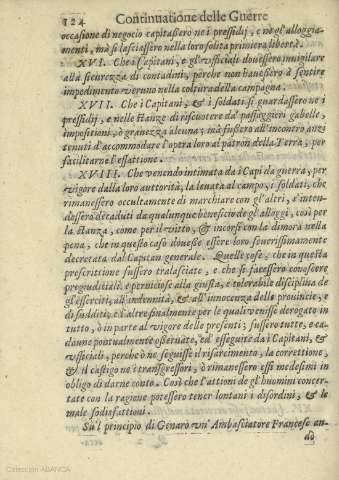 124 Continuatione delle Guerre
occasione di negocio capitassero ne i pressidij, e nè gl'alloggia-
menti, mà si lasciassero nella loro solita primiera libertà.
XVI. Che i Capitani, e gl'vfficiali douessero inuigilare
alla sicurezza di contadini, perche non hauessero à sentire
impedimento veruno nella coltura della campagna.
XVII. Che i Capitani, & i soldati si guardassero ne i
pressidij, e nelle stanze di riscuotere dà passaggieri gabelle,
impositioni, ò grauezza alcuna; mà fussero all'incontro anzi
tenuti d'accommodare l'opra loro al patron della Terra, per
facilitarne l'essattione.
XVIII. Che venendo intimata da i Capi da guerra, per
vigore dalla loro autorità, la leuata al campo, i soldati, che
rimanessero occultamente di marchiare con gl'altri, s'inten-
dessero decaduti da qualunque beneficio de gl'alloggi, così per
la stanza, come per il vitto, & incorsi con la dimora nella
pena, che in questo caso douesse essere loro seuerissimamente
decretata dal Capitan generale. Quelle cose, che in questa
prescrittione fussero tralasciate, e che si facessero conoscere
pregiuditiali e perniciose alla giusta, e tolerabile disciplina de
gl'esserciti, all'indennità, & all'innocenza delle prouincie, e
di sudditi; e l'altre finalmente per le quali venisse derogato in
tutto, ò in parte al vigore delle presenti; fussero tutte, e ca-
daune pontualmente osseruate, ed esseguite da i Capitani, &
vfficiali, perche ò ne seguisse il risarcimento, la correttione,
& il castigo ne i transgressori, ò rimanessero essi medesimi in
obligo di darne conto. Così che l'attioni de gl'huomini concer-
tate con la ragione potessero tener lontani i disordini, & le
male sodisfattioni.
Sù'l principio di Genaro vn' Ambasciatore Francese an-
dò
Colección ABANCA